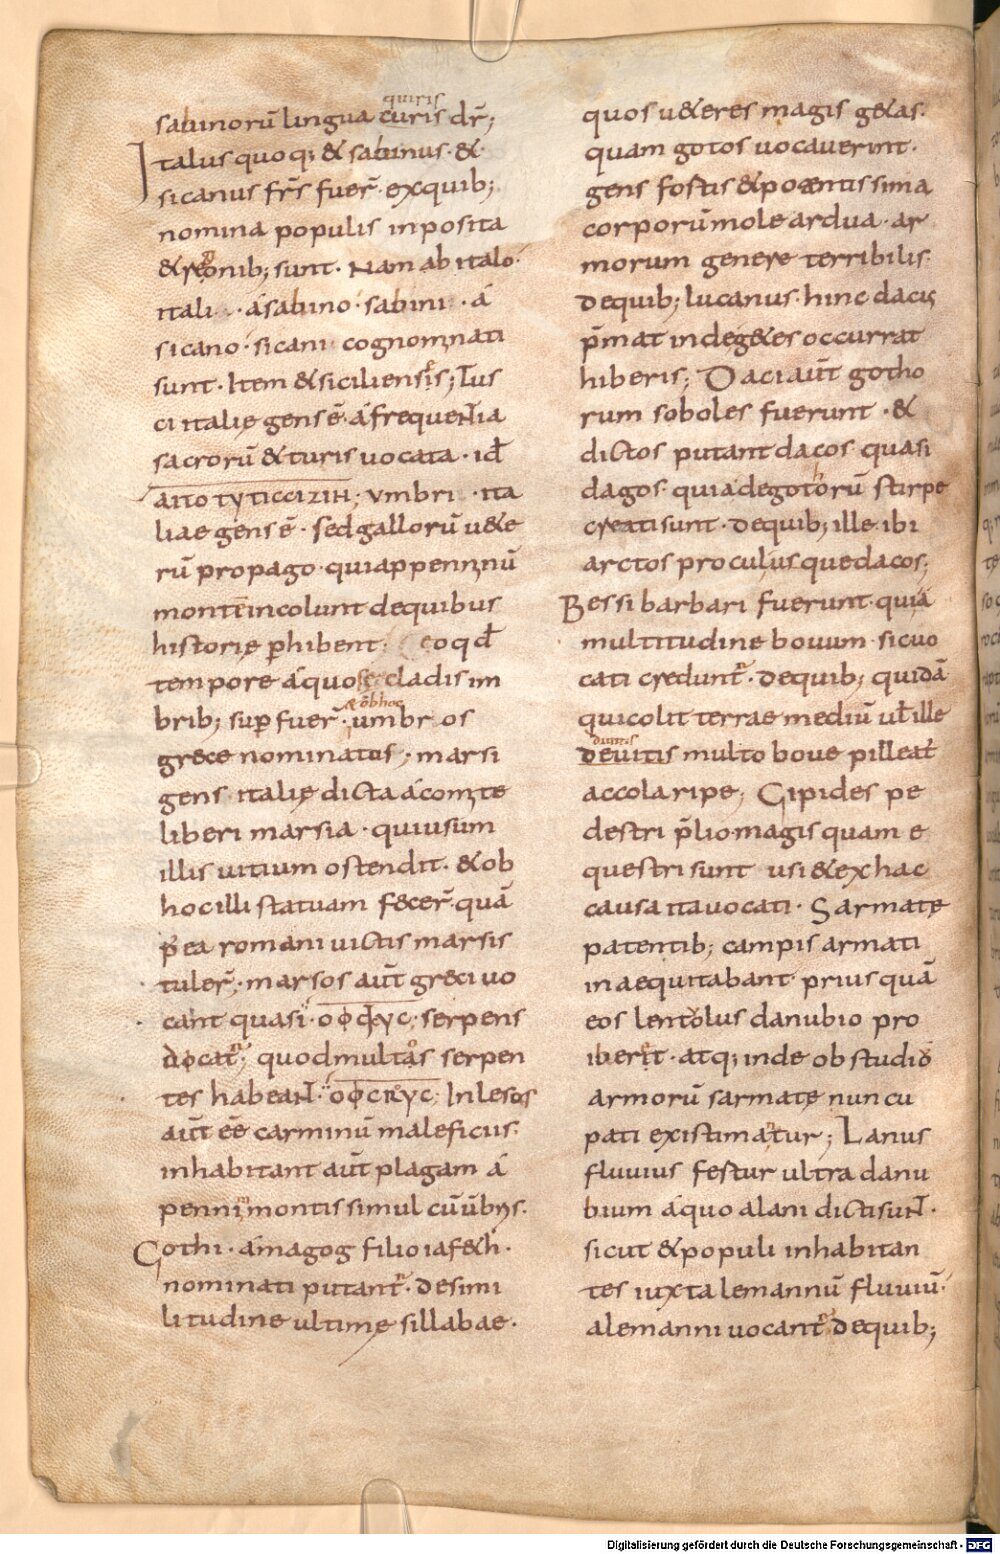 quiris
sabinorū lingua curis dr̄;
Italus quoq; & sabinus · &
sicanus frs̄ fuer̄ · exquib;
nomina populis inposita
& regionib; sunt · Nam ab italo
itali · ásabino · sabini · á
sicano · sicani cognominati
sunt · Item & sicilienses; Tus
ci italię gens ē · áfrequentia
sacrorū & turis uocata · id
umbri · ita
liae gens ē · sed gallorū u&e
rū propago · qui appenninū
montē incolunt dequibus
historię phibent · eo qd
tempore áquosę cladis im
brib; sup fuer̄ · umbr os
& ob hoc
grece nominatos; marsi
gens italię dicta ácomite
liberi marsia · qui usum
illis uitium ostendit · & ob
hoc illi statuam fecer̄ · quā
p̄ea romani uictis marsis
tuler̄; marsos aut̄ greci uo
cant quasi · οφφyc · serpens
quod multos serpen
tes habeant · Inlesos
aut̄ eē carminū maleficiis ·
inhabitant aut̄ plagam á
pennini montis simul cū ūbris ·
Gothi · ámagog filio iaf&h ·
nominati putant̄ · desimi
litudine ultimę sillabae ·
quos u&eres magis g&as ·
quam gotos uocauerint ·
gens fortis & potentissima
corporū mole ardua · ar
morum genere terribilis
dequib; lucanus · hinc dacis
p̄mat inde g&es occurrat
hiberis; Daci aut̄ gotho
rum soboles fuerunt · &
dictos putant dacos quasi
dagos · quia degothorū stirpe
creati sunt · dequib; ille · ibi
arctos procul usque dacos;
Bessi barbari fuerunt · quia
multitudine bouum · sic uo
cati credunt̄ · dequib; quidā
qui colit terrae mediū ul ille
diuitis
deuitis multo boue pilleat
accola ripe; Gipides pe
destri p̄lio magis quam e
questri sunt usi & ex hac
causa ita uocati · Sarmatę
patentib; campis armati
inaequitabant prius quā
eos lentolus danubio pro
iberet · atq; inde ob studiō
armorū sarmatę nuncu
pati existimantur; Lanus
fluuius fertur ultra danu
bium áquo alani dicti sunt ·
sicut & populi inhabitan
tes iuxta lemannū fluuiū ·
alemanni uocant̄ dequib;
Digitalisierung gefördert durch die Deutsche Forschungsgemeinschaft - DFG